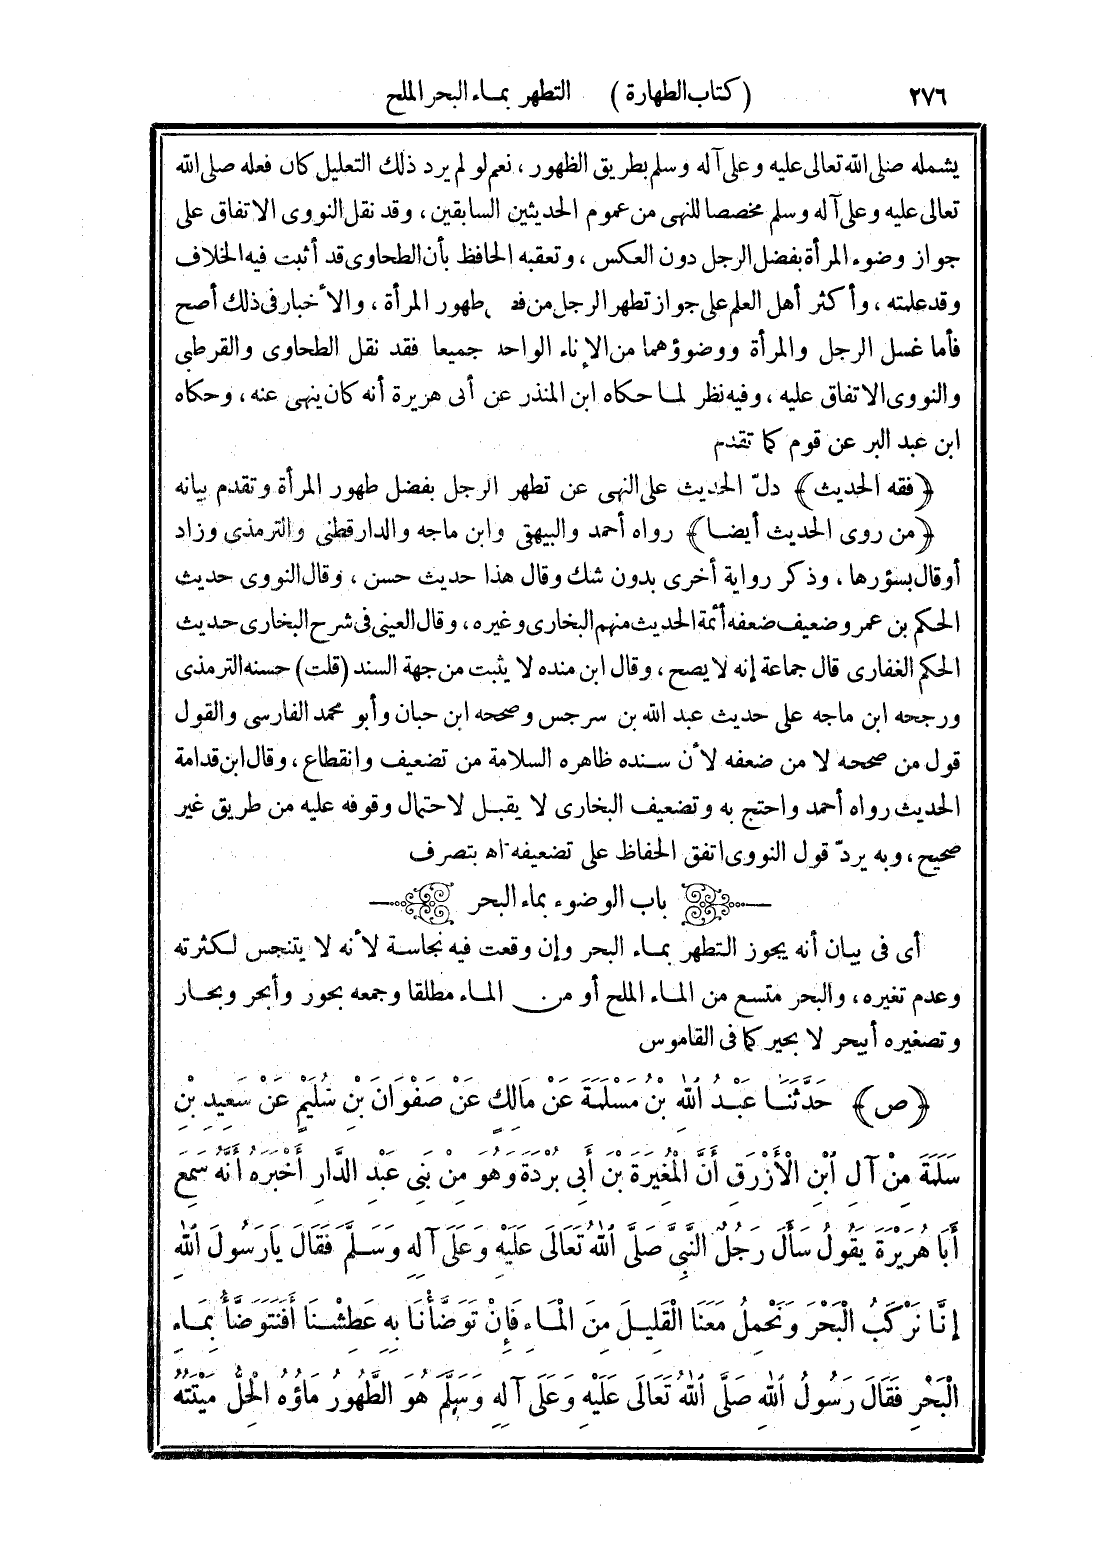 ٢٧٦ (كتاب الطهارة) التطهر بماء البحر الملح
يشمله صلى الله تعالى عليه وعلى آله وسلم بطريق الظهور ، نعم لو لم يرد ذلك التعليل كان فعله صلى الله
تعالى عليه وعلى آله وسلم مخصصا للنهى من عموم الحديثين السابقين ، وقد نقل النووى الاتفاق على
جواز وضوء المرأة بفضل الرجل دون العكس ، وتعقبه الحافظ بأن الطحاوى قد أثبت فيه الخلاف
وقد علمته ، وأكثر أهل العلم على جواز تطهر الرجل من طهور المرأة ، والأخبار فى ذلك أصح
فأما غسل الرجل والمرأة ووضوؤهما من الإناء الواحد جميعا فقد نقل الطحاوى والقرطبى
والنووى الاتفاق عليه ، وفيه نظر لما حكاه ابن المنذر عن أبى هريرة أنه كان ينهى عنه ، وحكاه
ابن عبد البر عن قوم كما تقدم
﴿فقه الحديث﴾ دلّ الحديث على النهى عن تطهر الرجل بفضل طهور المرأة وتقدم بيانه
﴿من روى الحديث أيضا﴾ رواه أحمد والبيهقى وابن ماجه والدارقطنى والترمذى وزاد
أو قال بسؤرها ، وذكر رواية أخرى بدون شك وقال هذا حديث حسن ، وقال النووى حديث
الحكم بن عمرو ضعيف ضعفه أئمة الحديث منهم البخارى وغيره ، وقال العينى فى شرح البخارى حديث
الحكم الغفارى قال جماعة إنه لا يصح ، وقال ابن منده لا يثبت من جهة السند (قلت) حسنه الترمذى
ورجحه ابن ماجه على حديث عبد الله بن سرجس وصححه ابن حبان وأبو محمد الفارسى والقول
قول من صححه لا من ضعفه لأن سنده ظاهره السلامة من تضعيف وانقطاع ، وقال ابن قدامة
الحديث رواه أحمد واحتج به وتضعيف البخارى لا يقبل لاحتمال وقوفه عليه من طريق غير
صحيح ، وبه يردّ قول النووى اتفق الحفاظ على تضعيفه اه بتصرف
باب الوضوء بماء البحر
أى فى بيان أنه يجوز التطهر بماء البحر وإن وقعت فيه نجاسة لأنه لا يتنجس لكثرته
وعدم تغيره ، والبحر متسع من الماء الملح أو من الماء مطلقا وجمعه بحور وأبحر وبحار
وتصغيره أبيحر لا بحير كما فى القاموس
﴿ص﴾ حَدَّثَنَا عَبْدُ اللهِ بْنُ مَسْلَمَةَ عَنْ مَالِكٍ عَنْ صَفْوَانَ بْنِ سُلَيْمٍ عَنْ سَعِيدِ بْنِ
سَلَمَةَ مِنْ آلِ ابْنِ الْأَزْرَقِ أَنَّ الْمُغِيرَةَ بْنَ أَبِى بُرْدَةَ وَهُوَ مِنْ بَنِى عَبْدِ الدَّارِ أَخْبَرَهُ أَنَّهُ سَمِعَ
أَبَا هُرَيْرَةَ يَقُولُ سَأَلَ رَجُلٌ النَّبِىَّ صَلَّى اللهُ تَعَالَى عَلَيْهِ وَعَلَى آلِهِ وَسَلَّمَ فَقَالَ يَارَسُولَ اللهِ
إِنَّا نَرْكَبُ الْبَحْرَ وَنَحْمِلُ مَعَنَا الْقَلِيلَ مِنَ الْمَاءِ فَإِنْ تَوَضَّأْنَا بِهِ عَطِشْنَا أَفَنَتَوَضَّأُ بِمَاءِ
الْبَحْرِ فَقَالَ رَسُولُ اللهِ صَلَّى اللهُ تَعَالَى عَلَيْهِ وَعَلَى آلِهِ وَسَلَّمَ هُوَ الطَّهُورُ مَاؤُهُ الْحِلُّ مَيْتَتُهُ